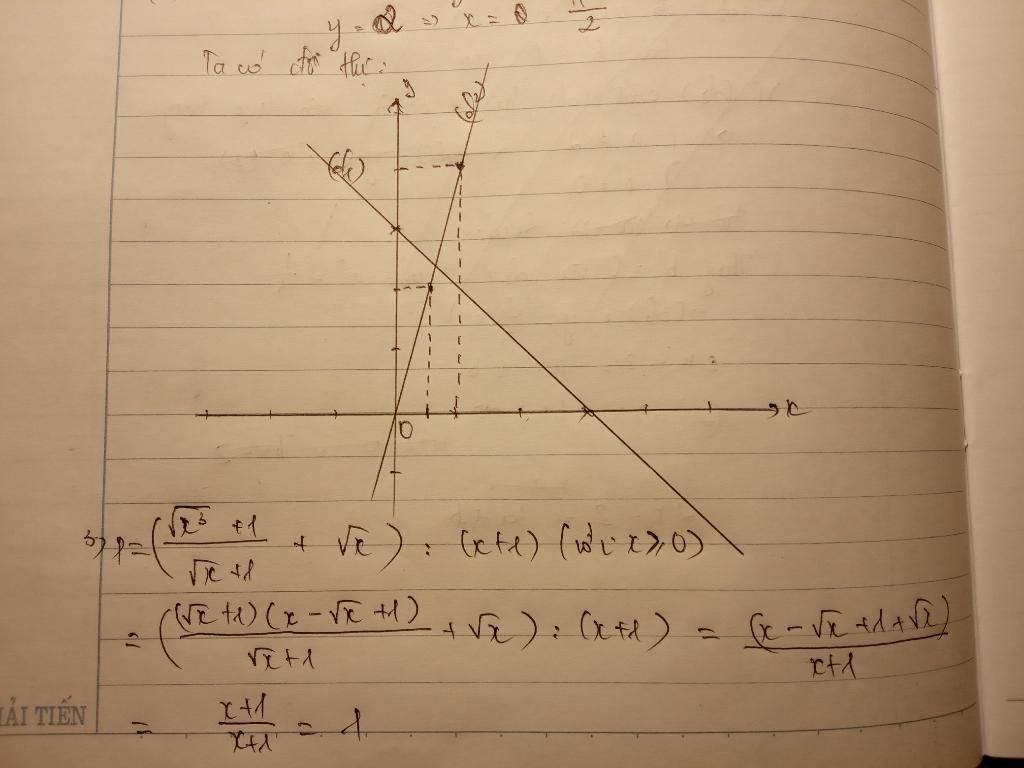 y = 2 ⇒ x =
Ta có đồ thị:
y
(d₂)
(d₁)
O
x
3, P = ( (√x³ + 1)/(√x + 1) + √x ) : (x+1) (với x ⩾ 0)
= ( (√x+1)(x - √x + 1)/(√x+1) + √x ) : (x+1) = (x - √x + 1 + √x)/(x+1)
ẢI TIẾN
= (x+1)/(x+1) = 1